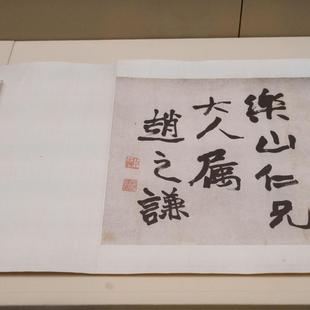 樂山仁兄
大人属
趙之謙